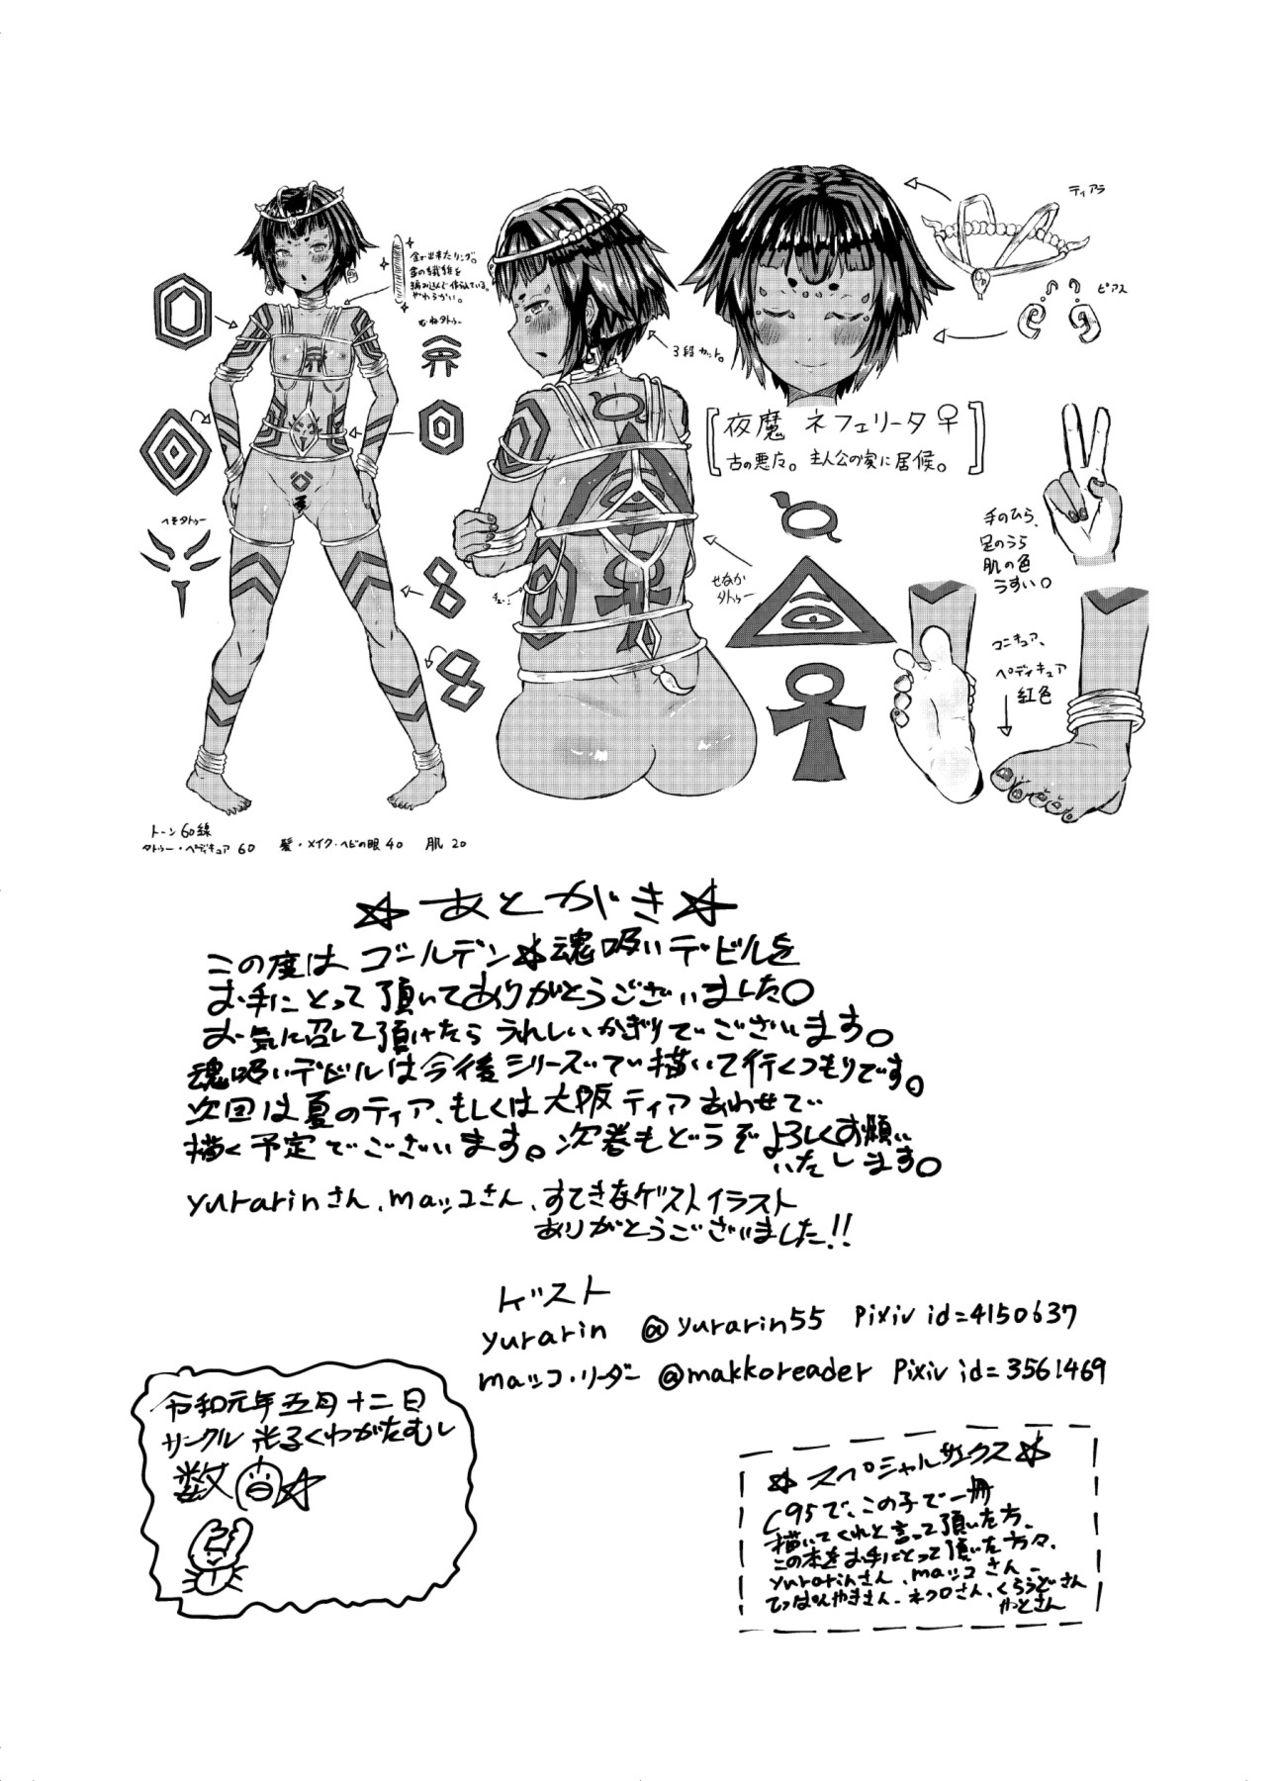 ティアラ
ピアス
金で出来たリング。
金の繊維を
編み込んで作られている。
やわらかい。
むねタトゥー
3段カット。
[夜魔 ネフェリータ♀
古の悪魔。主人公の家に居候。]
へそタトゥー
せなか
タトゥー
手のひら、
足のうら
肌の色
うすい。
ペディキュア
紅色
トーン60線
タトゥー・ペディキュア 60 髪・メイク・ヘビの眼 40 肌 20
☆あとがき☆
この度はゴールデン☆魂吸いデビルを
お手にとって頂いてありがとうございました。
お気に召して頂けたらうれしいかぎりでございます。
魂吸いデビルは今後シリーズで描いて行くつもりです。
次回は夏のティア、もしくは大阪ティアあわせで
描く予定でございます。次巻もどうぞよろしくお願い
いたします。
yurarinさん、maッコさん、すてきなゲストイラスト
ありがとうございました!!
ゲスト
yurarin @yurarin55 Pixiv id=4150637
maッコ・リーダー @makkoreader Pixiv id=3561469
令和元年五月十二日
サークル 光るくわがたむし
数
☆スペシャルサンクス☆
C95で、この子で一冊
描いてくれと言って頂いた方、
この本をお手にとって頂いた方々、
yurarinさん、maッコさん、
てっぱんやきさん、ネクロさん、くらうどさん
やとさん